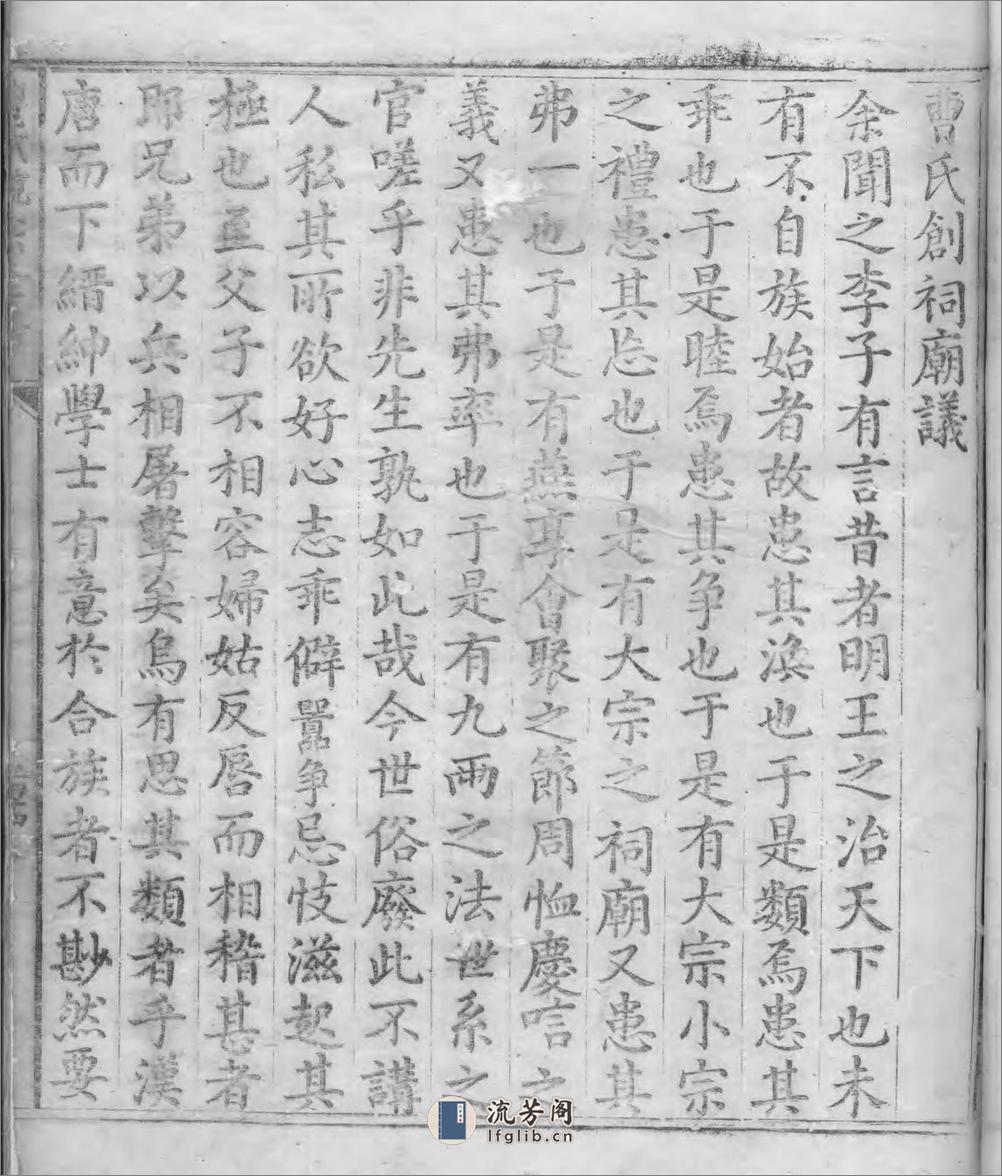 曹氏創祠廟議
余聞之李子有言昔者明王之治天下也未
有不自族始者故患其渙也于是類焉患其
乖也于是睦焉患其争也于是有大宗小宗
之禮患其忘也于是有大宗之祠廟又患其
弗一也于是有燕享會聚之節周恤慶唁之
義又患其弗率也于是有九兩之法世系之
官嗟乎非先生孰如此哉今世俗廢此不講
人私其所欲好心志乖僻嚚争忌忮滋起其
極也至父子不相容婦姑反唇而相稽甚者
郎兄弟以兵相屠擊矣烏有思其類者乎漢
唐而下縉紳學士有意於合族者不尠然要
流芳阁
lfglib.cn